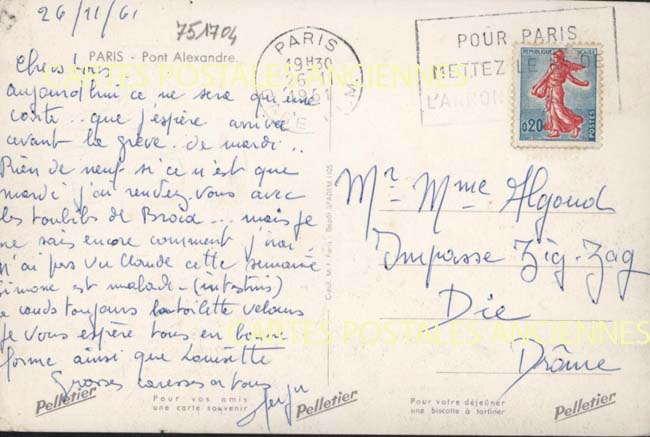 26/11/61
751704
PARIS - Pont Alexandre
Chers vous
aujourd'hui ce ne sera qu'une
carte.. que j'espère arrivée
avant la grève.. de mardi..
Rien de neuf si ce n'est que
mardi j'ai rendez-vous avec
les toubibs de Broca... mais je
ne sais encore comment j'irai
N'ai pas vu Claude cette semaine
Simone est malade - (intestins)
Je couds toujours la toilette velours
Je vous espère tous en bonne
forme ainsi que Louisette
Grosses caresses à tous
Pelletier
Pour vos amis
une carte souvenir
Pelletier
Pour votre déjeuner
une biscotte à tartiner
Pelletier
PARIS
19H30
26
1961
POUR PARIS
METTEZ LE DE
L'ARRON
REPUBLIQUE FRANÇAISE
0,20
POSTES
Mr. Mme Algoud
Impasse Zig-Zag
Die
Drôme
CARTES POSTALES ANCIENNES
CARTES POSTALES ANCIENNES